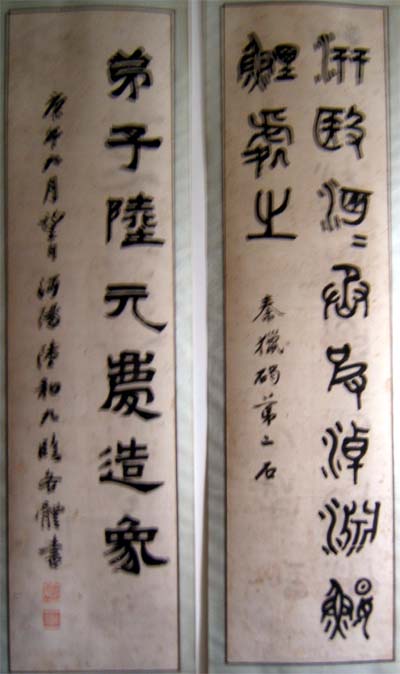 汧殹沔〻丞皮淖淵鰋
鯉處之
秦獵碣第二石
弟子陸元慶造象
庚午九月望日沔陽陸和九臨各體書